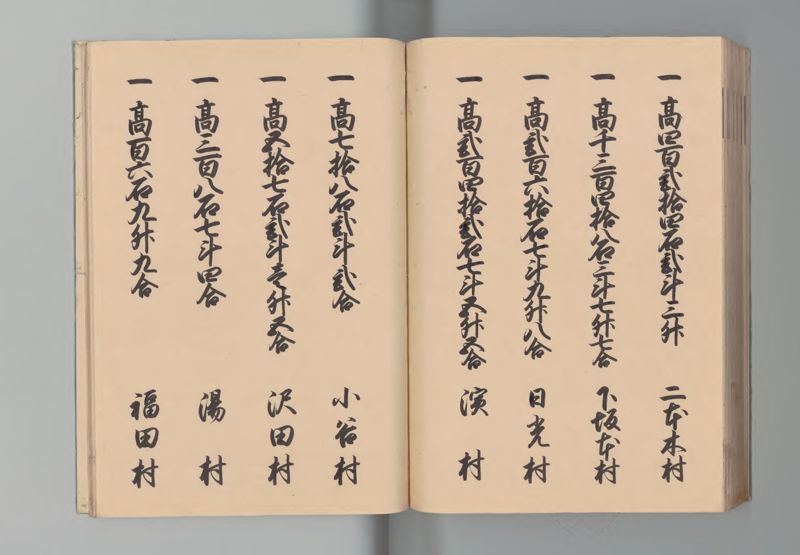 一 髙四百弐拾四石弐斗三升 二本木村
一 髙千三百四拾八石三斗七升七合 下坂本村
一 髙弐百六拾石七斗九升八合 日光村
一 髙弐百四拾弐石七斗五升五合 濱村
一 髙七拾八石弐斗弐合 小谷村
一 髙五拾七石弐斗壱升五合 沢田村
一 髙三百八石七斗四合 湯村
一 髙百六石九升九合 福田村